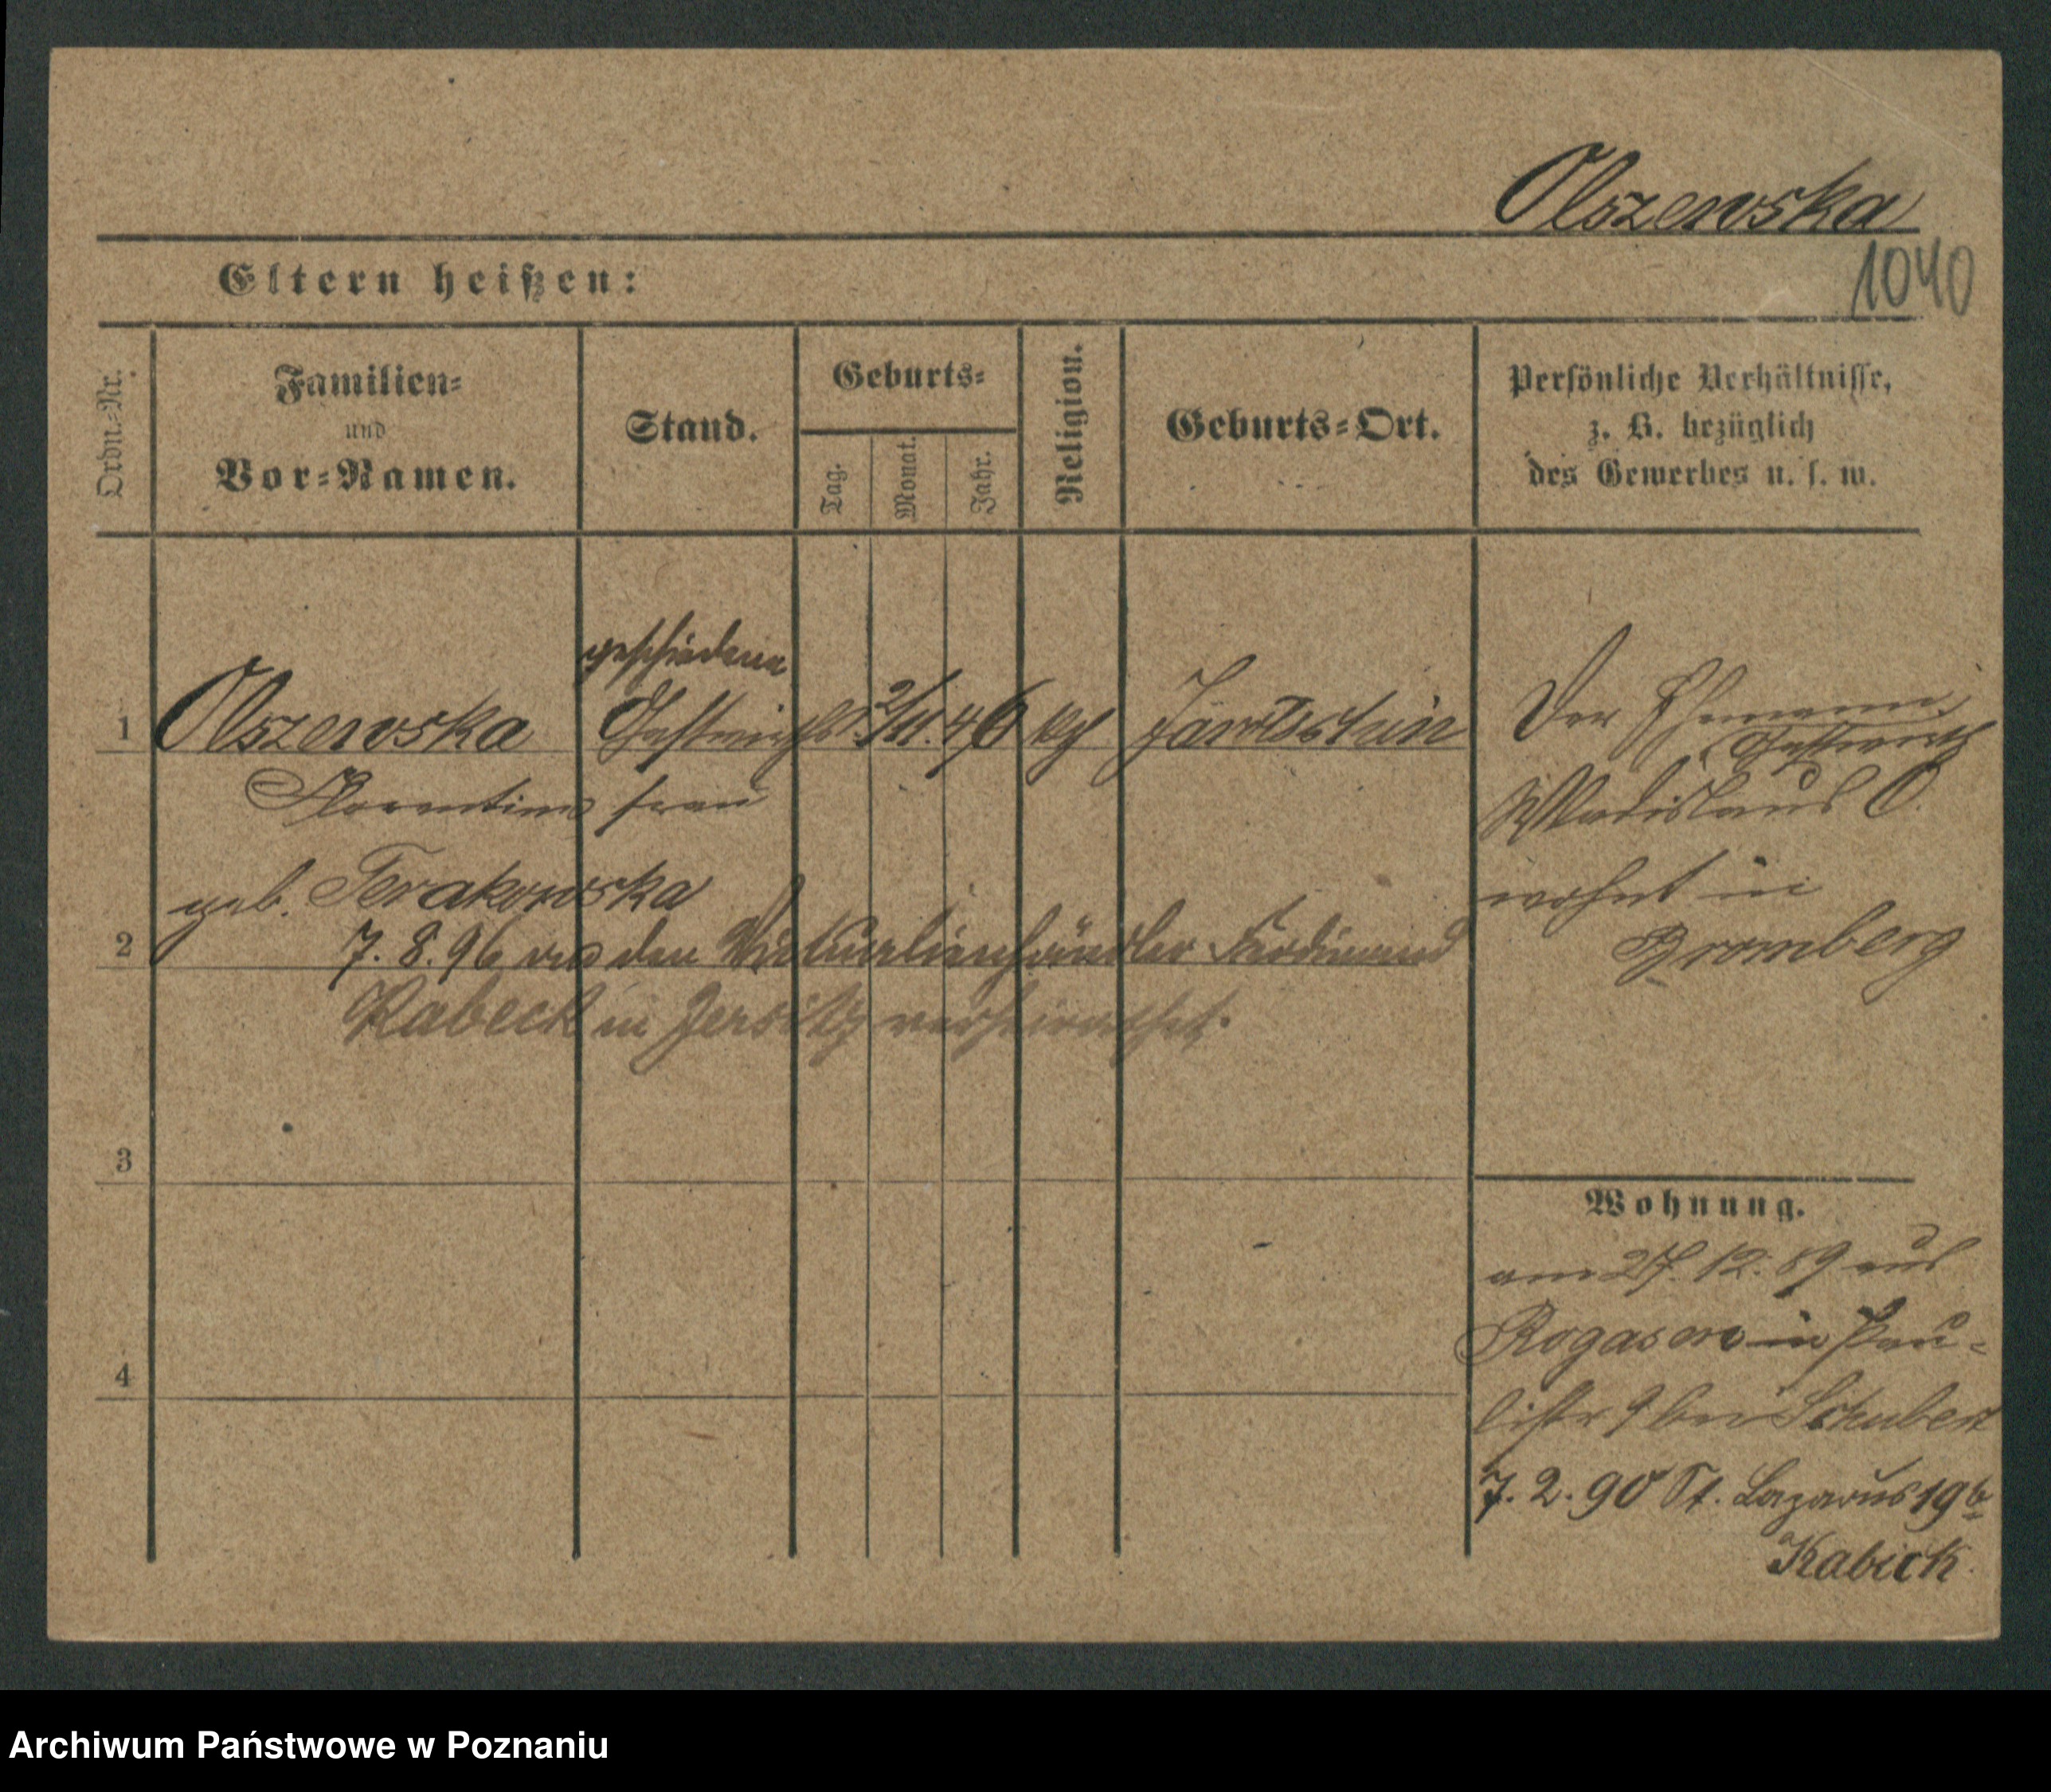 Olszewska
1040
Eltern heißen:
Ordn.=Nr.
Familien=
und
Vor=Namen.
Stand.
Geburts=
Tag.
Monat.
Jahr.
Religion.
Geburts=Ort.
Persönliche Verhältnisse,
z. B. bezüglich
des Gewerbes u. s. w.
geschiedene
1 Olszewska Gastwirths 46 kth
Florentine frau
geb. Terakowska
2 7.8.96 den Victualienhändler Ferdinand
Kabeck in Jersitz verheirathet.
3
4
Der Ehemann
Gastwirth
Wladislaus O.
wohnt in
Bromberg
Wohnung.
am 27.12.89 aus
Rogasen in Pau=
listr 9 bei Schubert
7.2.90 St. Lazarus 19b
Kabick.
Archiwum Państwowe w Poznaniu